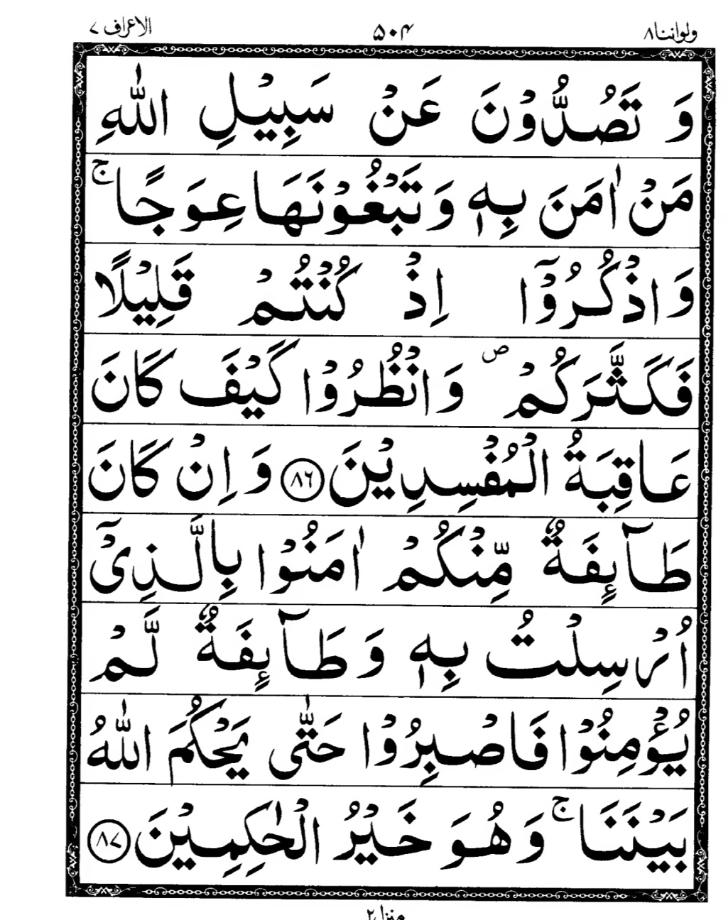 ولواننا۸ ۵۰۴ الاعراف ۷
وَ تَصُدُّوْنَ عَنْ سَبِیْلِ اللّٰهِ
مَنْ اٰمَنَ بِهٖ وَ تَبْغُوْنَهَا عِوَجًا ۚ
وَ اذْكُرُوْۤا اِذْ كُنْتُمْ قَلِیْلًا
فَكَثَّرَكُمْ ۪ وَ انْظُرُوْا كَیْفَ كَانَ
عَاقِبَةُ الْمُفْسِدِیْنَ ۟﴿۸۶﴾ وَ اِنْ كَانَ
طَآىِٕفَةٌ مِّنْكُمْ اٰمَنُوْا بِالَّذِیْۤ
اُرْسِلْتُ بِهٖ وَ طَآىِٕفَةٌ لَّمْ
یُؤْمِنُوْا فَاصْبِرُوْا حَتّٰی یَحْكُمَ اللّٰهُ
بَیْنَنَا ۚ وَ هُوَ خَیْرُ الْحٰكِمِیْنَ ﴿۸۷﴾
منزل۲